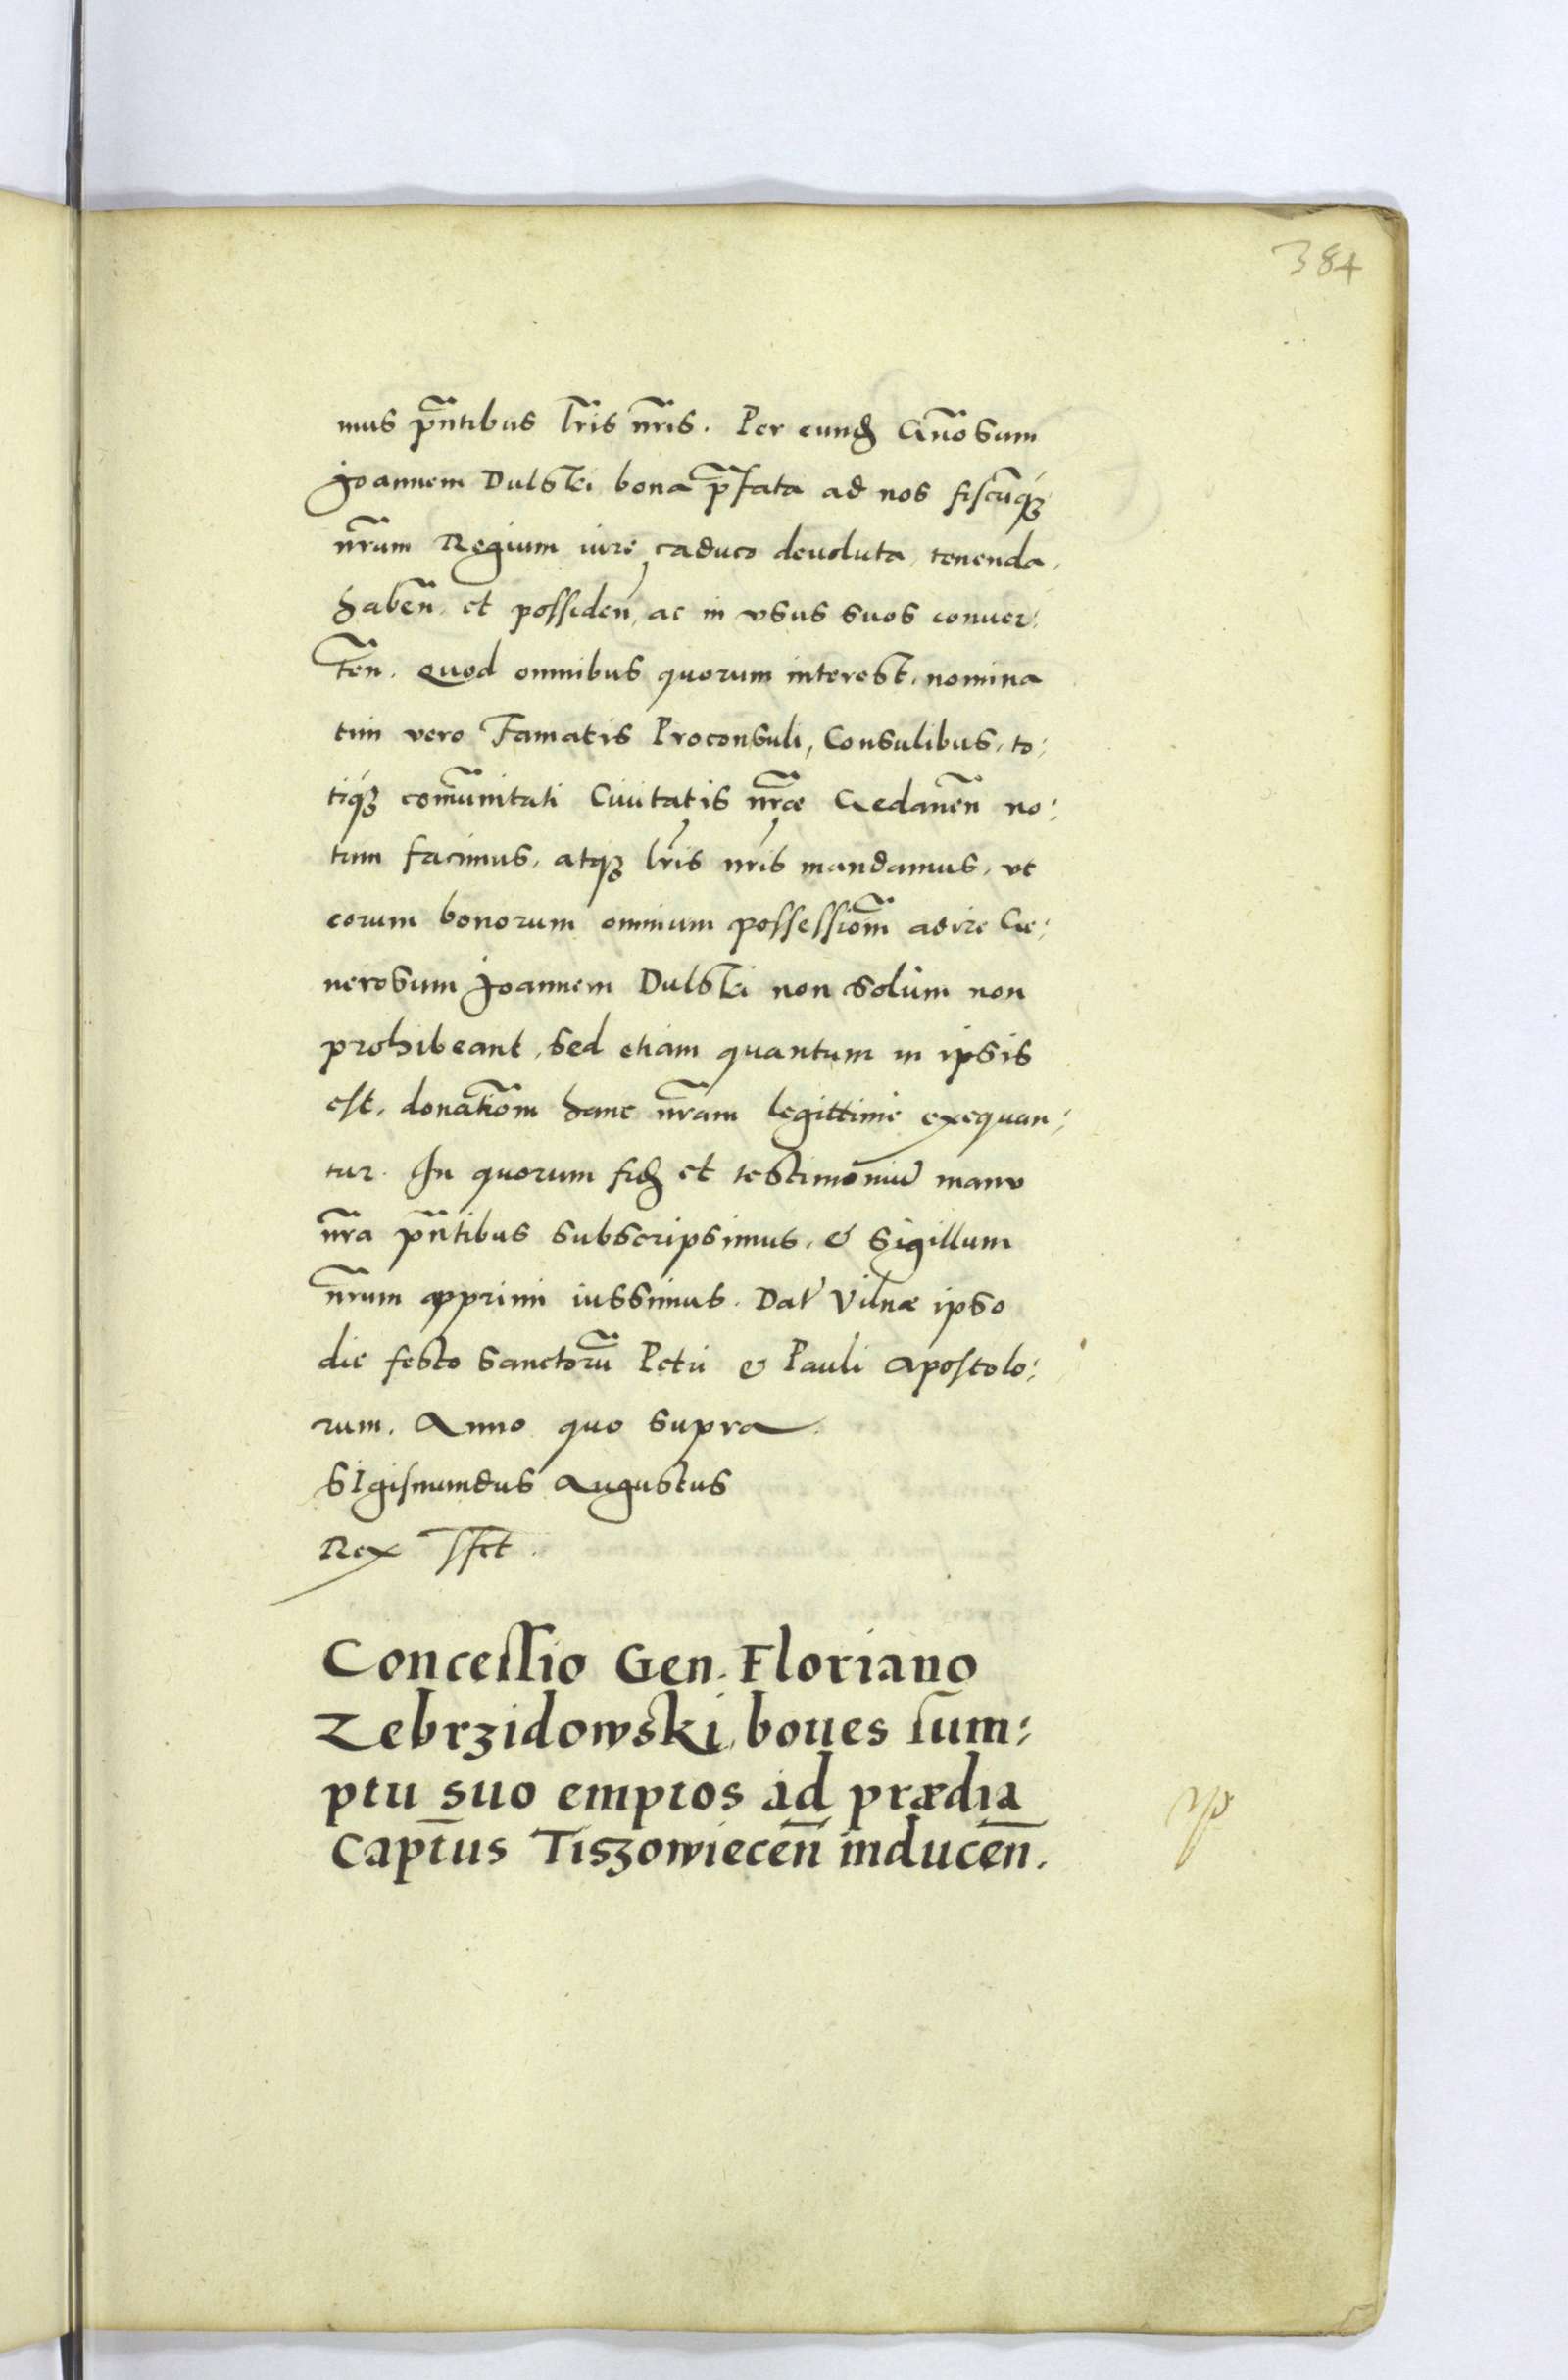 384
mus p̃ntibus lr̃is nr̃is. Per eundẽ Gñosum
Joannem Dulski bona p̃fata ad nos fiscũq́ꝫ
nr̃um Regium iure caduco deuoluta, tenenda,
habeñ. et possideñ, ac in vsus suos conuer:
teñ. Quod omnibus quorum interest. nomina
tim vero Famatis Proconsuli, Consulibus, to:
tiq́ꝫ com̃unitati Ciuitatis nr̃æ Gedaneñ no:
tum facimus, atqꝫ lr̃is nr̃is mandamus, vt
eorum bonorum omnium possessiom̃ adire Ge:
nerosum Joannem Dulski non solùm non
prohibeant, sed etiam quantum in ipsis
est, donatiom̃ hanc nr̃am legittimè exequan:
tur. In quorum fidẽ et testimoniũ manu
nr̃a p̃ntibus subscripsimus, & Sigillum
nr̃um apprimi iussimus. Dat̃ Vilnæ ipso
die festo Sanctorũ Petri & Pauli Apostolo:
rum. Anno quo supra
Sigismundus Augustus
Rex sst.
Concessio Gen. Floriano
Zebrzidowski, boues sum:
ptu suo emptos ad prædia
Capt̃us Tiszowieceñ induceñ.